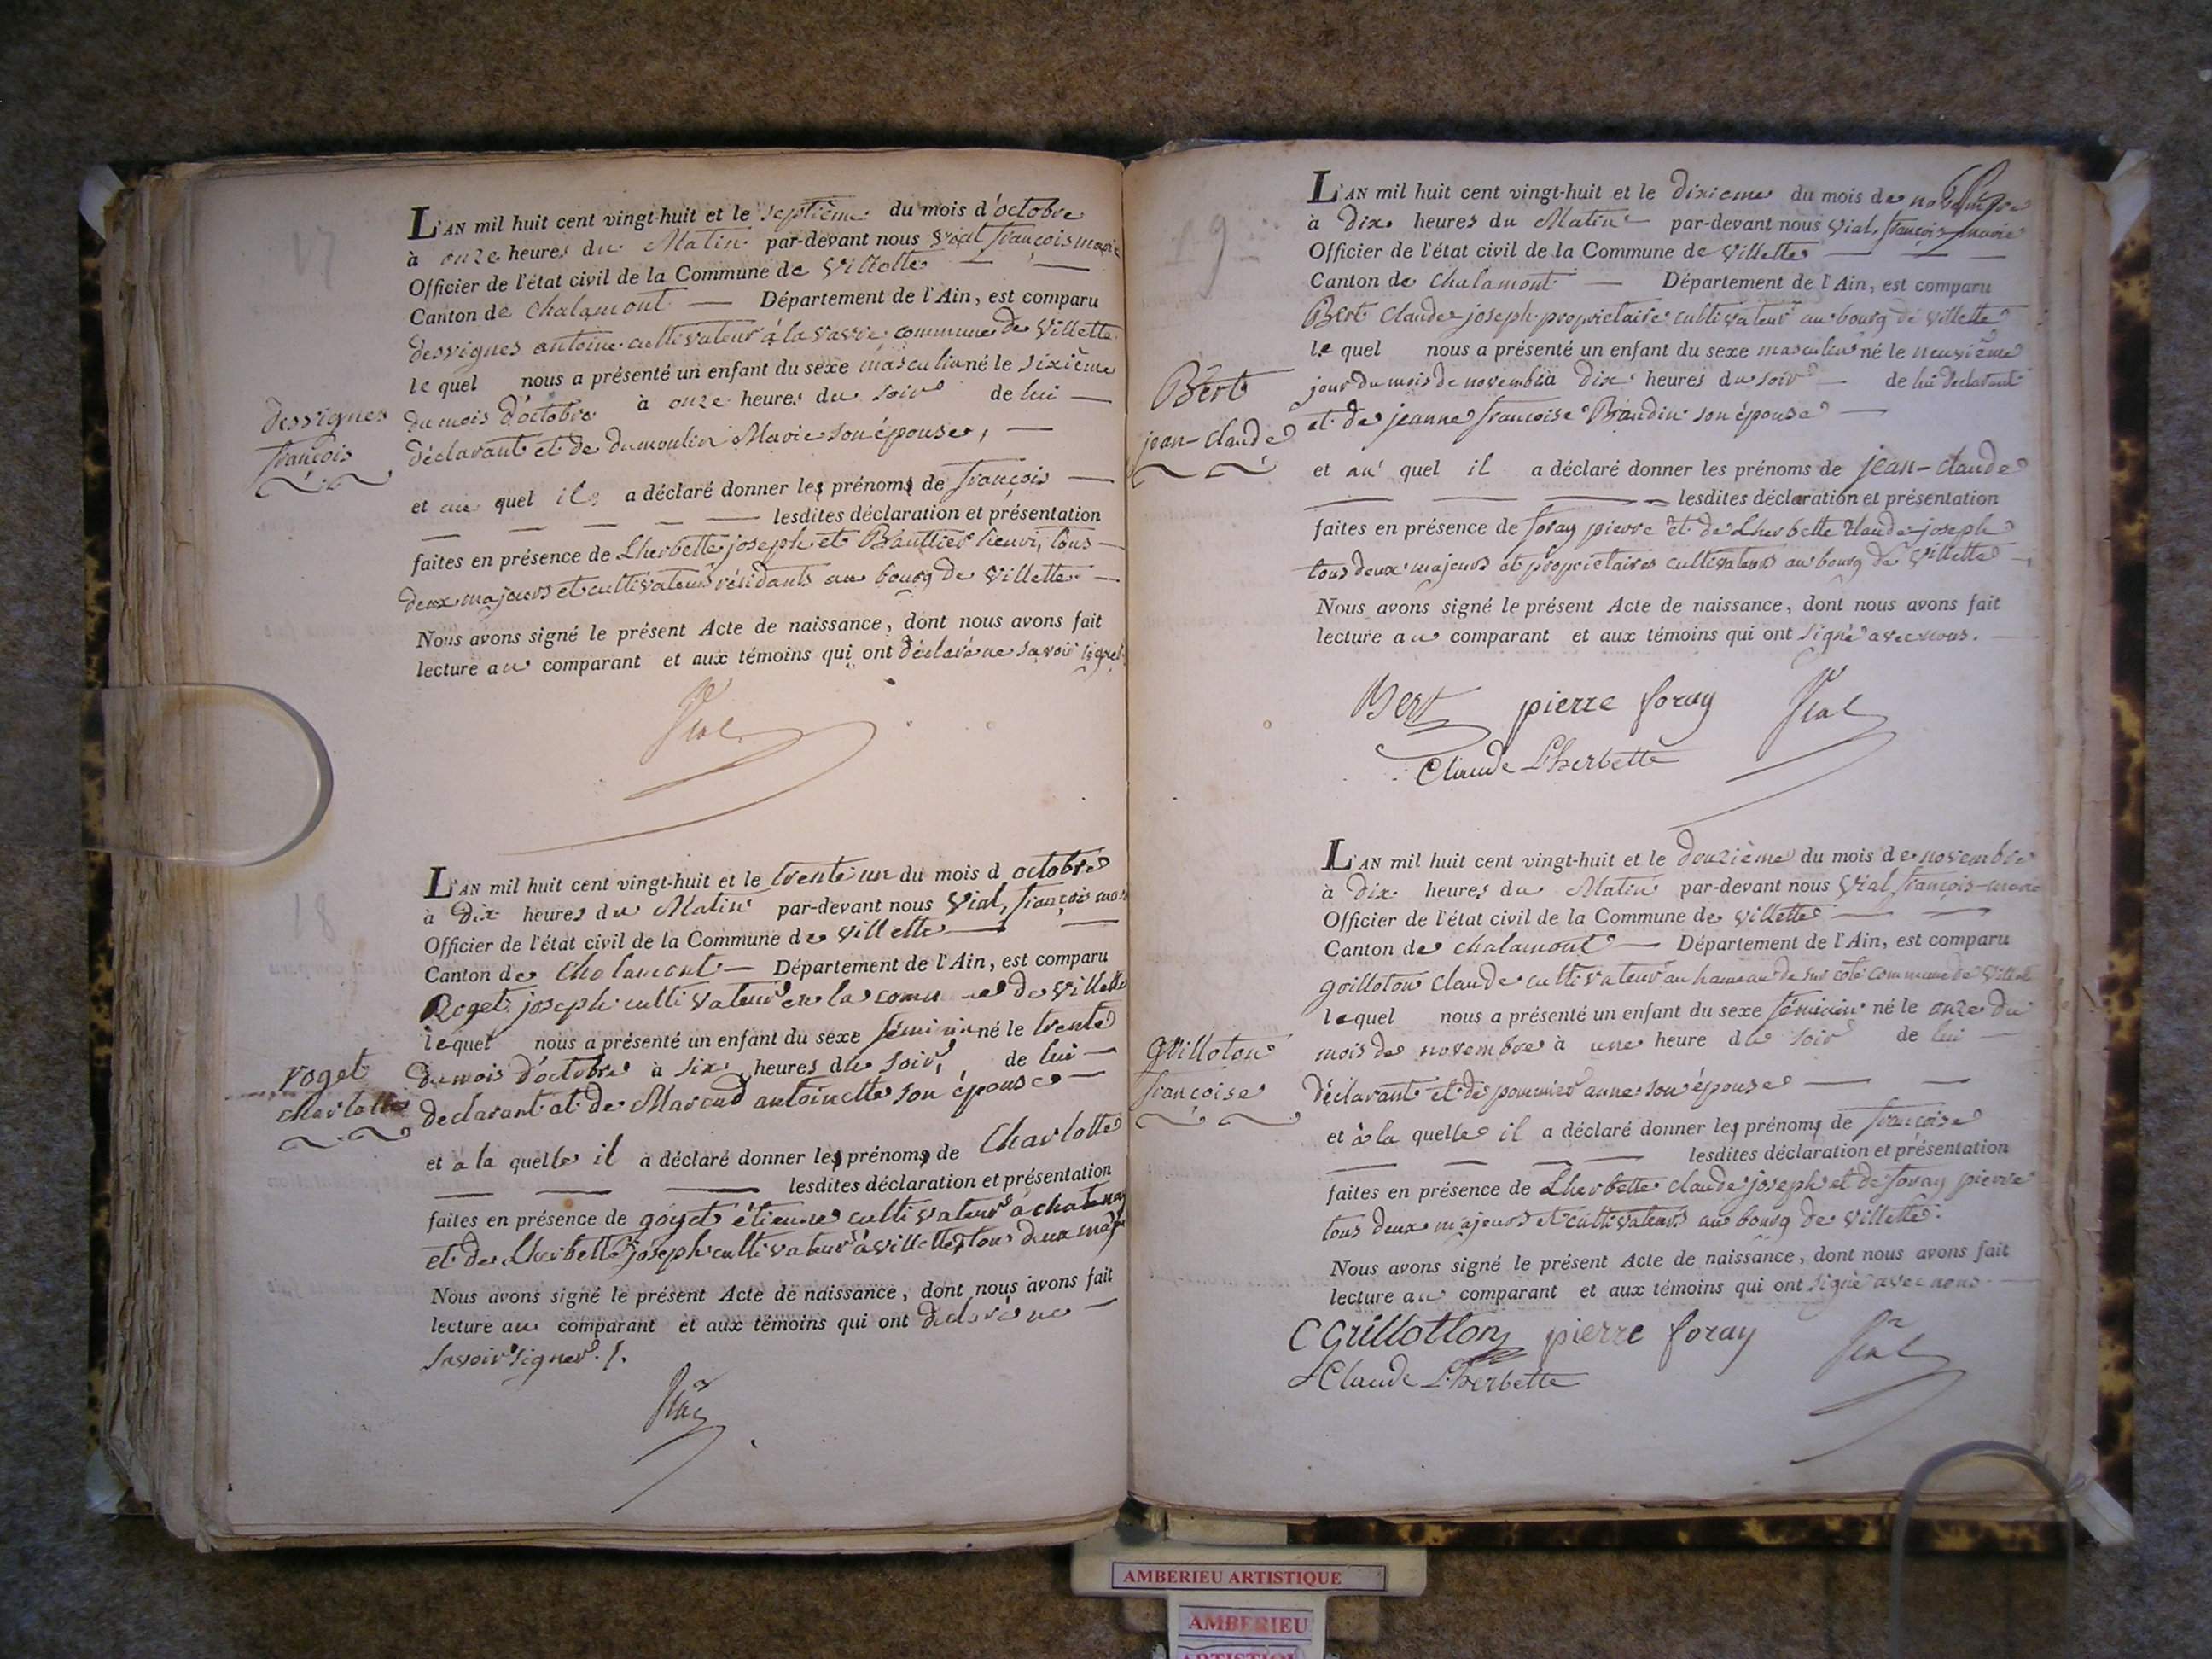 17
L'AN mil huit cent vingt-huit et le septième du mois d'octobre
à onze heures du Matin par-devant nous Vial françois marie
Officier de l'état civil de la Commune de Villette
Canton de Chalamont Département de l'Ain, est comparu
desvignes antoine cultivateur à la vavre commune de Villette
le quel nous a présenté un enfant du sexe masculin né le sixième
du mois d'octobre à onze heures du soir de lui
déclarant et de dumoulin Marie son épouse,
desvignes
françois
et au quel il a déclaré donner les prénoms de françois
lesdites déclaration et présentation
faites en présence de Lherbette joseph et henri, tous
deux majeurs et cultivateurs résidants au bourg de Villette
Nous avons signé le présent Acte de naissance, dont nous avons fait
lecture au comparant et aux témoins qui ont déclaré ne savoir signer
Vial
18
L'AN mil huit cent vingt-huit et le trente un du mois d octobre
à Dix heures du Matin par-devant nous Vial, françois
Officier de l'état civil de la Commune de Villette
Canton de Chalamont Département de l'Ain, est comparu
Roget joseph cultivateur en la de Villette
lequel nous a présenté un enfant du sexe féminin né le trente
du mois d'octobre à six heures du soir, de lui
declarant et de antoinette son épouse
roget
charlotte
et à la quelle il a déclaré donner les prénoms de Charlotte
lesdites déclaration et présentation
faites en présence de goyet étienne cultivateur à chatenay
et de Lherbette joseph cultivateur à villette, tous deux
Nous avons signé le présent Acte de naissance, dont nous avons fait
lecture au comparant et aux témoins qui ont déclaré ne
savoir signer.
Vial
19
L'AN mil huit cent vingt-huit et le dixieme du mois de novembre
à Dix heures du Matin par-devant nous Vial, françois marie
Officier de l'état civil de la Commune de Villette
Canton de Chalamont Département de l'Ain, est comparu
Bert Claude joseph propriétaire cultivateur au bourg de villette
le quel nous a présenté un enfant du sexe masculin né le neuvième
jour du mois de novembre à Dix heures du soir de lui déclarant
et de jeanne françoise son épouse
Bert
jean-claude
et au quel il a déclaré donner les prénoms de jean-claude
lesdites déclaration et présentation
faites en présence de foray pierre et de Lherbette Claude joseph
tous deux majeurs et propriétaires cultivateurs au bourg de Villette
Nous avons signé le présent Acte de naissance, dont nous avons fait
lecture au comparant et aux témoins qui ont signé avec nous.
Bert pierre foray Vial
Claude Lherbette
L'AN mil huit cent vingt-huit et le douzième du mois de novembre
à Dix heures du Matin par-devant nous Vial, françois-marie
Officier de l'état civil de la Commune de villette
Canton de chalamont Département de l'Ain, est comparu
claude cultivateur au hameau de sur côte commune de Villette
lequel nous a présenté un enfant du sexe féminin né le onze du
mois de novembre à une heure du soir de lui
déclarant et de pommier anne son épouse
françoise
et à la quelle il a déclaré donner les prénoms de françoise
lesdites déclaration et présentation
faites en présence de Lherbette claude joseph et de foray pierre
tous deux majeurs et cultivateurs au bourg de villette.
Nous avons signé le présent Acte de naissance, dont nous avons fait
lecture au comparant et aux témoins qui ont signé avec nous
C Grillotton pierre foray Vial
Claude Lherbette
AMBERIEU ARTISTIQUE
AMBERIEU
ARTISTIQUE